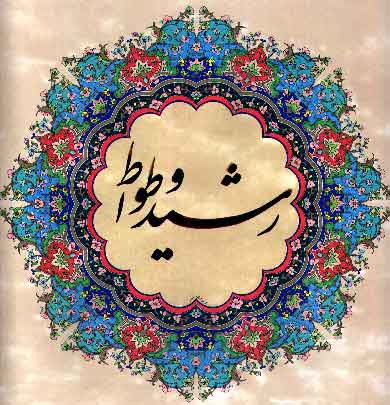 رشید وطواط